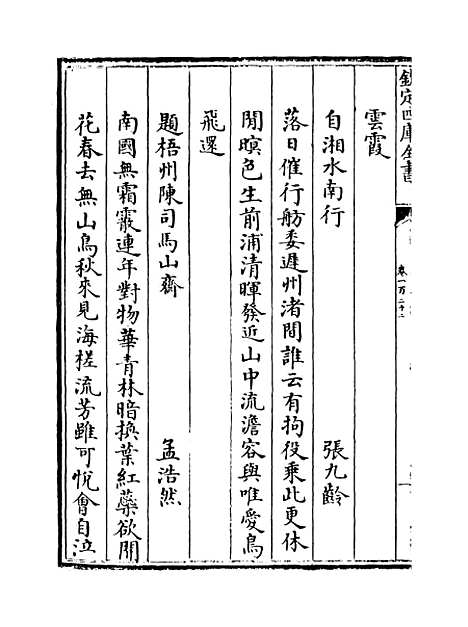 欽定四庫全書
卷一百二十二
雲霞
自湘水南行 張九齡
落日催行舫委遲州渚間誰云有拘役乘此更休
閒暝色生前浦清暉發近山中流澹容與唯愛鳥
飛還
題梧州陳司馬山齋 孟浩然
南國無霜霰連年對物華青林暗換葉紅蘂欲開
花春去無山鳥秋來見海槎流芳雖可悅會自泣